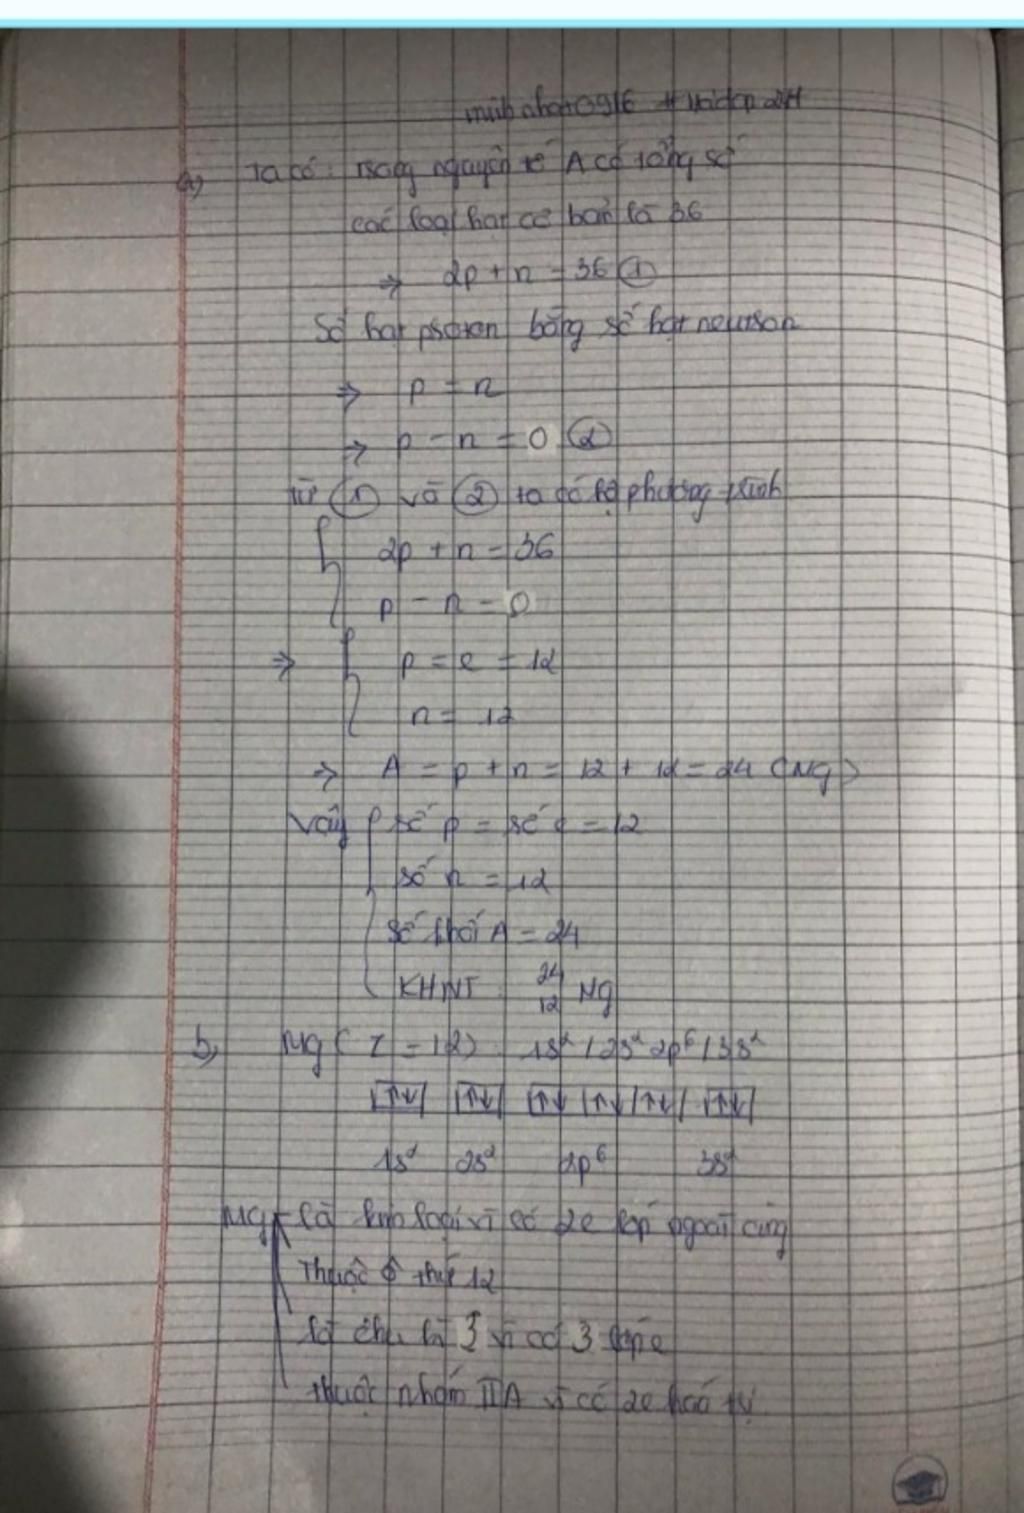 a) Ta có: Trong nguyên tố A có tổng số
các loại hạt cơ bản là 36
⇒ 2p + n = 36 ①
Số hạt proton bằng số hạt neutron
⇒ p = n
⇒ p - n = 0 ②
Từ ① và ② ta có hệ phương trình
{ 2p + n = 36
p - n = 0
⇒ { p = e = 12
n = 12
⇒ A = p + n = 12 + 12 = 24 (Mg)
Vậy { số p = số e = 12
số n = 12
số khối A = 24
KHNT ²⁴₁₂Mg
b, Mg (Z = 12) 1s² / 2s² 2p⁶ / 3s²
↑↓ ↑↓ ↑↓ ↑↓ ↑↓ ↑↓
1s² 2s² 2p⁶ 3s²
Mg là kim loại vì có 2e lớp ngoài cùng
Thuộc ô thứ 12
3 vì có 3 lớp e
thuộc nhóm IIA vì có 2e hoá trị